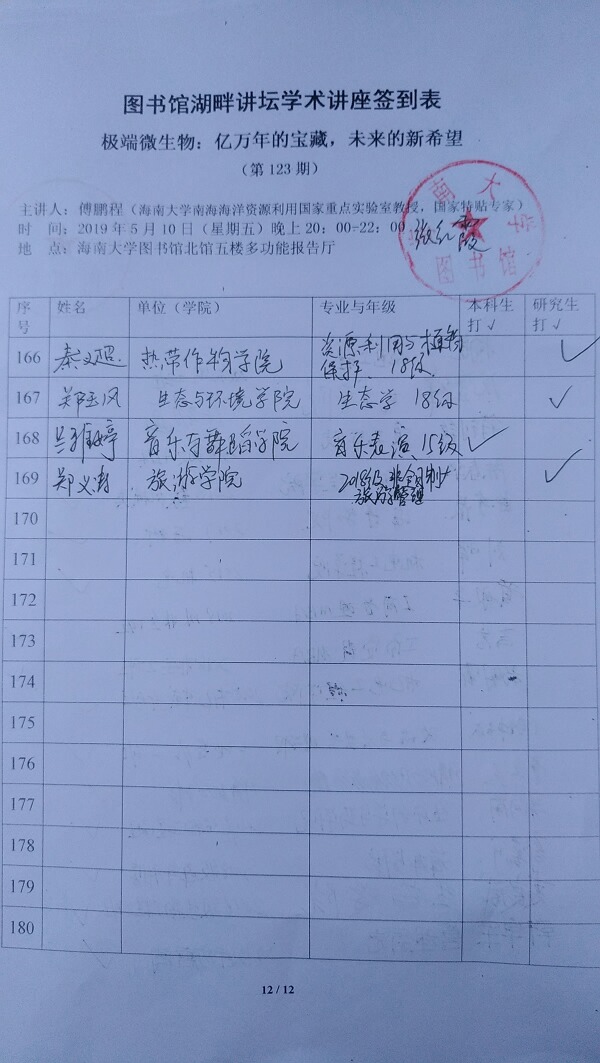 图书馆湖畔讲坛学术讲座签到表
极端微生物：亿万年的宝藏，未来的新希望
（第 123 期）
主讲人：傅鹏程（海南大学南海海洋资源利用国家重点实验室教授，国家特贴专家）
时 间：2019 年 5 月 10 日（星期五）晚上 20：00-22：00
地 点：海南大学图书馆北馆五楼多功能报告厅
海南大学图书馆
张红霞
序号 姓名 单位（学院） 专业与年级 本科生打√ 研究生打√
166 秦 热带作物学院 资源利用与植物保护 18级 √
167 郑玉风 生态与环境学院 生态学 18级 √
168 吴雅婷 音乐与舞蹈学院 音乐表演 15级 √
169 郑义涛 旅游学院 2018级 非全日制 旅游管理 √
170
171
172
173
174
175
176
177
178
179
180
12 / 12